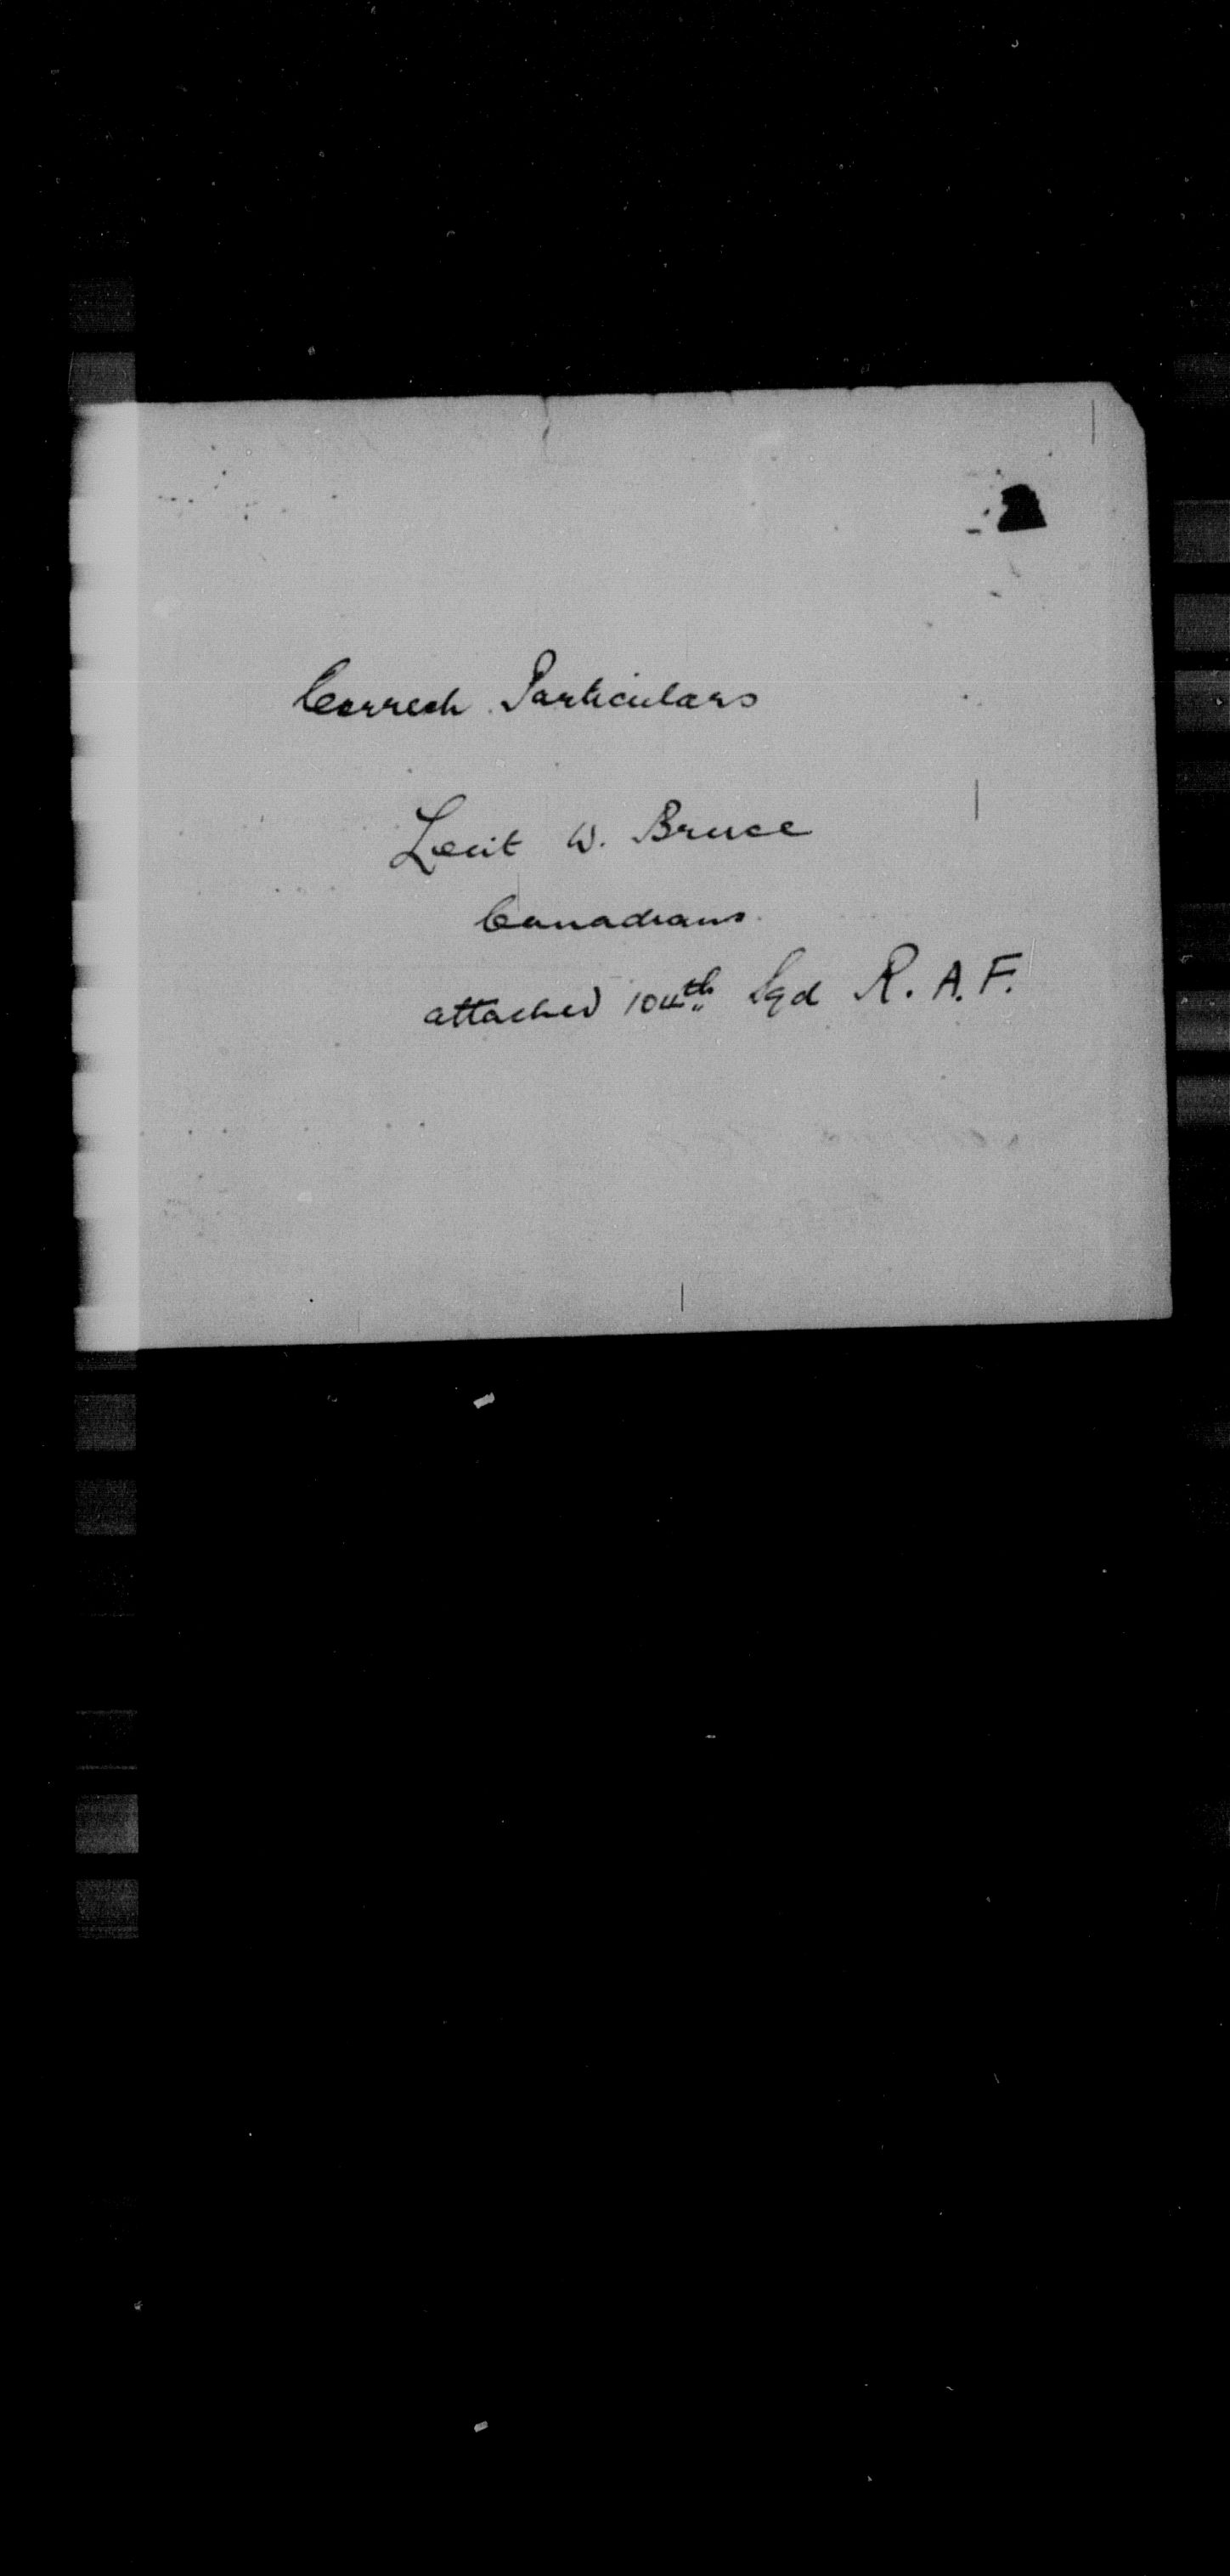 Correct Particulars
Leiut W. Bruce
Canadians.
attached 104th Sqd R. A. F.